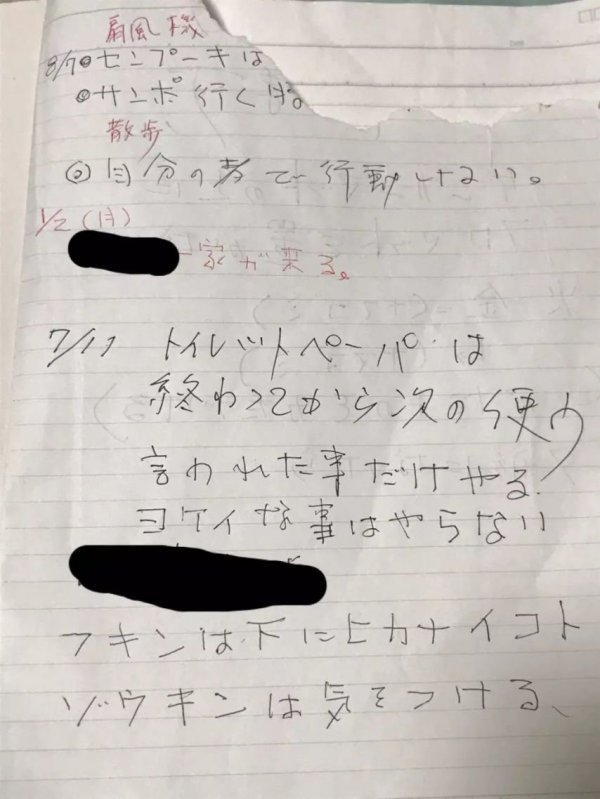 扇風機
8/7◎センプーキは
◎サンポ行くは。
散歩
◎自分の考で行動しない。
1/2(月)
家が来る。
7/11 トイレットペーパーは
終わってから次の使う
言われた事だけやる。
ヨケイな事はやらない
フキンは下にヒカナイコト
ゾウキンは気をつける、